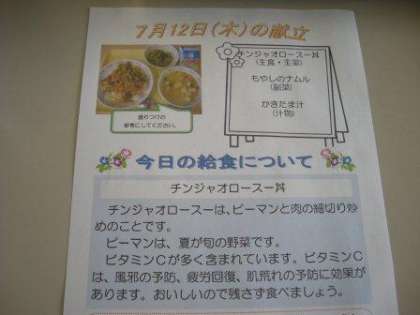 7月12日(木)の献立
チンジャオロースー丼
(主食・主菜)
もやしのナムル
(副菜)
かきたま汁
(汁物)
盛りつけの
参考にしてください。
今日の給食について
チンジャオロースー丼
チンジャオロースーは、ピーマンと肉の細切り炒
めのことです。
ピーマンは、夏が旬の野菜です。
ビタミンCが多く含まれています。ビタミンC
は、風邪の予防、疲労回復、肌荒れの予防に効果が
あります。おいしいので残さず食べましょう。